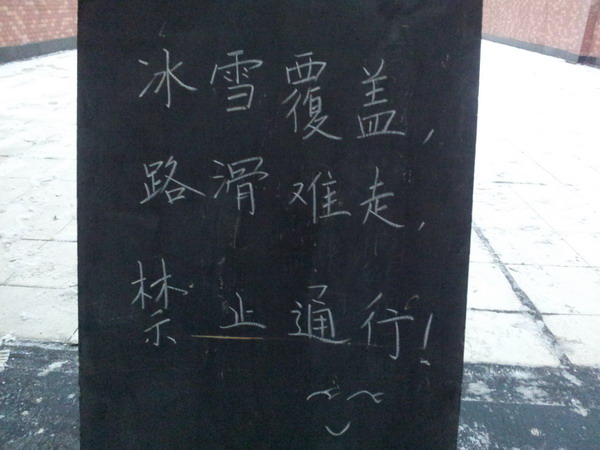 冰雪覆盖，
路滑难走，
禁止通行！